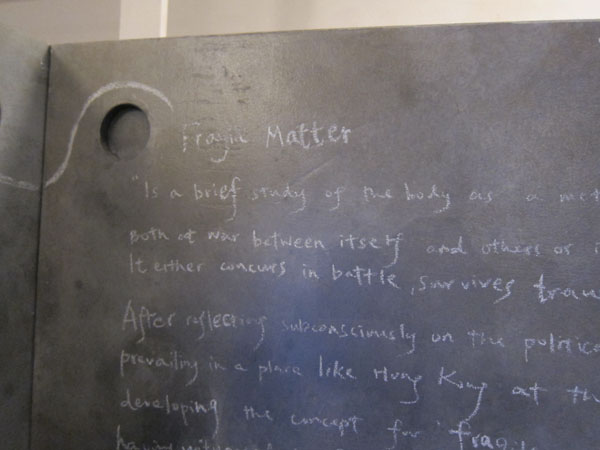 Fragile Matter
"Is a brief study of the body as a met
Both at war between itself and others or i
It either concurs in battle, survives trau
After reflecting subconsciously on the politica
prevailing in a place like Hong Kong at th
developing the concept for "fragile
having